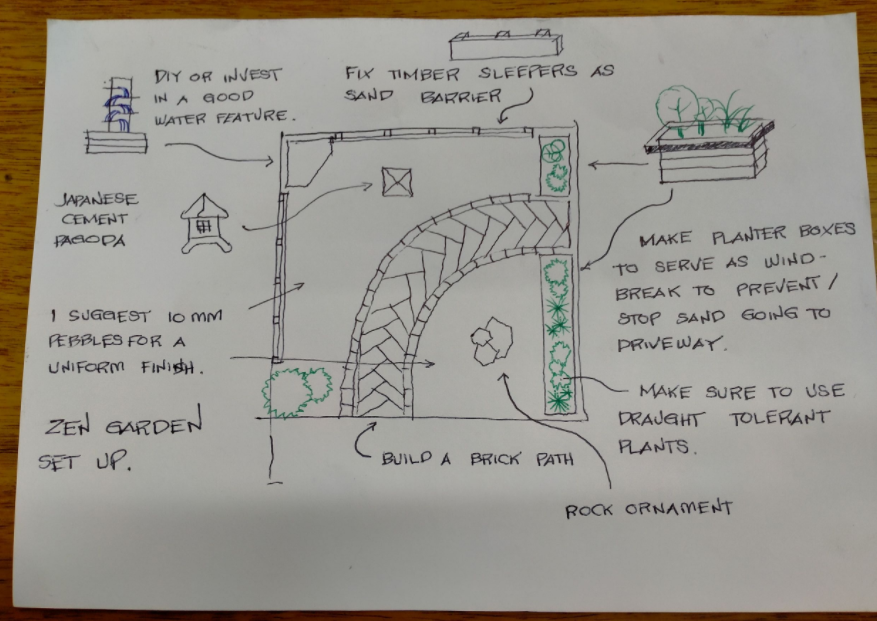 DIY OR INVEST
IN A GOOD
WATER FEATURE.
FIX TIMBER SLEEPERS AS
SAND BARRIER
JAPANESE
CEMENT
PAGODA
I SUGGEST 10 MM
PEBBLES FOR A
UNIFORM FINISH.
ZEN GARDEN
SET UP.
MAKE PLANTER BOXES
TO SERVE AS WIND-
BREAK TO PREVENT /
STOP SAND GOING TO
DRIVEWAY.
MAKE SURE TO USE
DRAUGHT TOLERANT
PLANTS.
BUILD A BRICK PATH
ROCK ORNAMENT